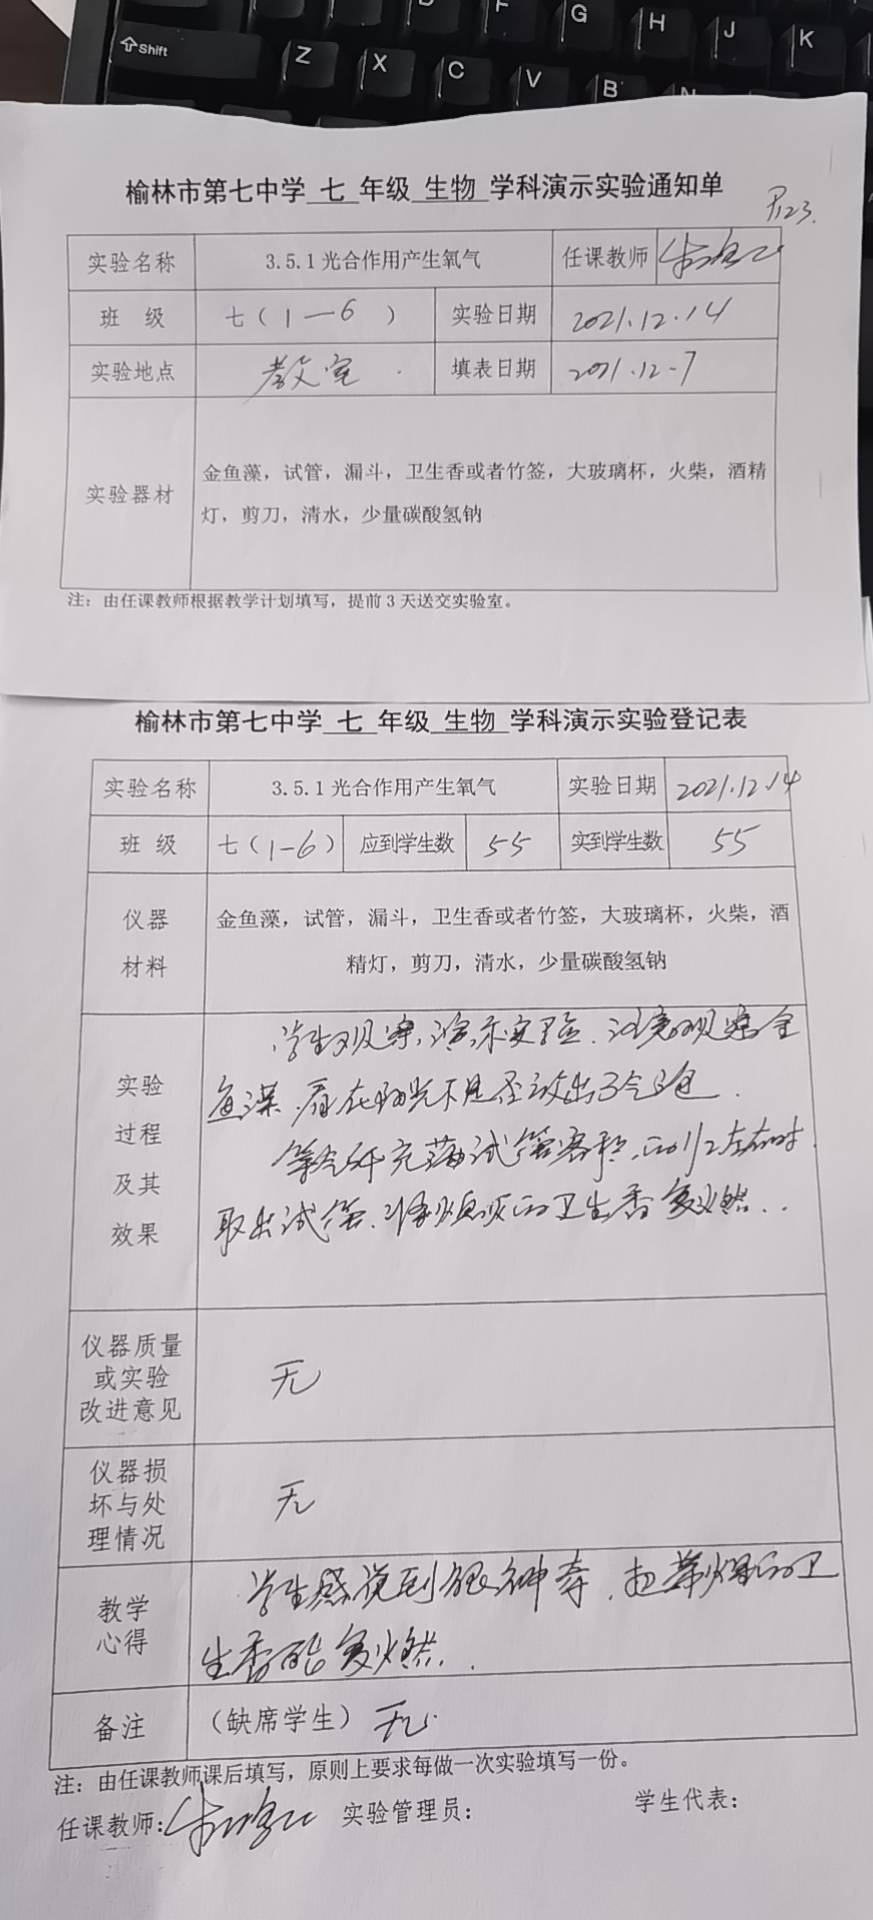 Shift Z X C V B N D F G H J K
榆林市第七中学 七 年级 生物 学科演示实验通知单
P123.
实验名称 3.5.1光合作用产生氧气 任课教师
班 级 七（1—6） 实验日期 2021.12.14
实验地点 教室 填表日期 2021.12-7
实验器材 金鱼藻，试管，漏斗，卫生香或者竹签，大玻璃杯，火柴，酒精
灯，剪刀，清水，少量碳酸氢钠
注：由任课教师根据教学计划填写，提前3天送交实验室。
榆林市第七中学 七 年级 生物 学科演示实验登记表
实验名称 3.5.1光合作用产生氧气 实验日期 2021.12.14
班 级 七（1-6） 应到学生数 55 实到学生数 55
仪器
材料
金鱼藻，试管，漏斗，卫生香或者竹签，大玻璃杯，火柴，酒
精灯，剪刀，清水，少量碳酸氢钠
实验
过程
及其
效果
学生观察，演示实验．观察金
鱼藻 看在阳光下是否放出了气泡．
等气体充满试管容积的1/2左右时．
取出试管．将快熄灭的卫生香复燃．．
仪器质量
或实验
改进意见
无
仪器损
坏与处
理情况
无
教学
心得
学生感觉到很神奇．把带火星的卫
生香能复燃．
备注 （缺席学生）无
注：由任课教师课后填写，原则上要求每做一次实验填写一份。
任课教师： 实验管理员： 学生代表：